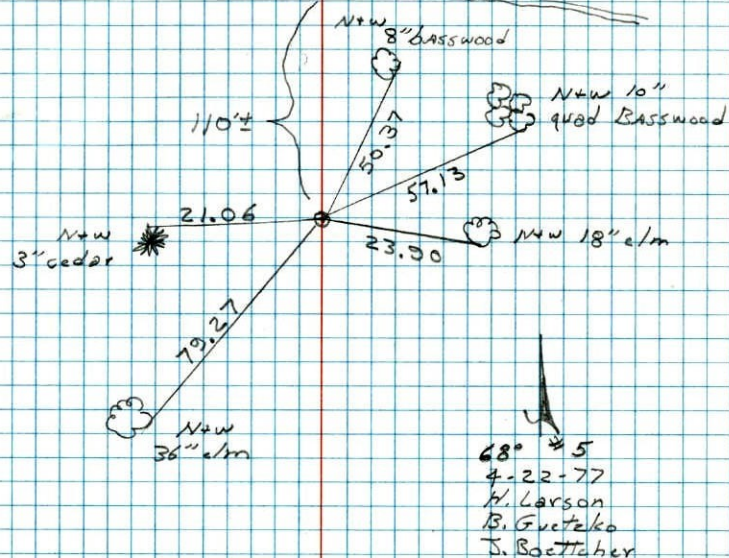 N+W
8" bASSwood
N+W 10"
quad BASSwood
110'±
50.37
57.13
21.06
N+W
3" cedar
23.90
N+W 18" elm
79.27
N+W
36" elm
68° #5
4-22-77
H. Larson
B. Guetzko
J. Boettcher